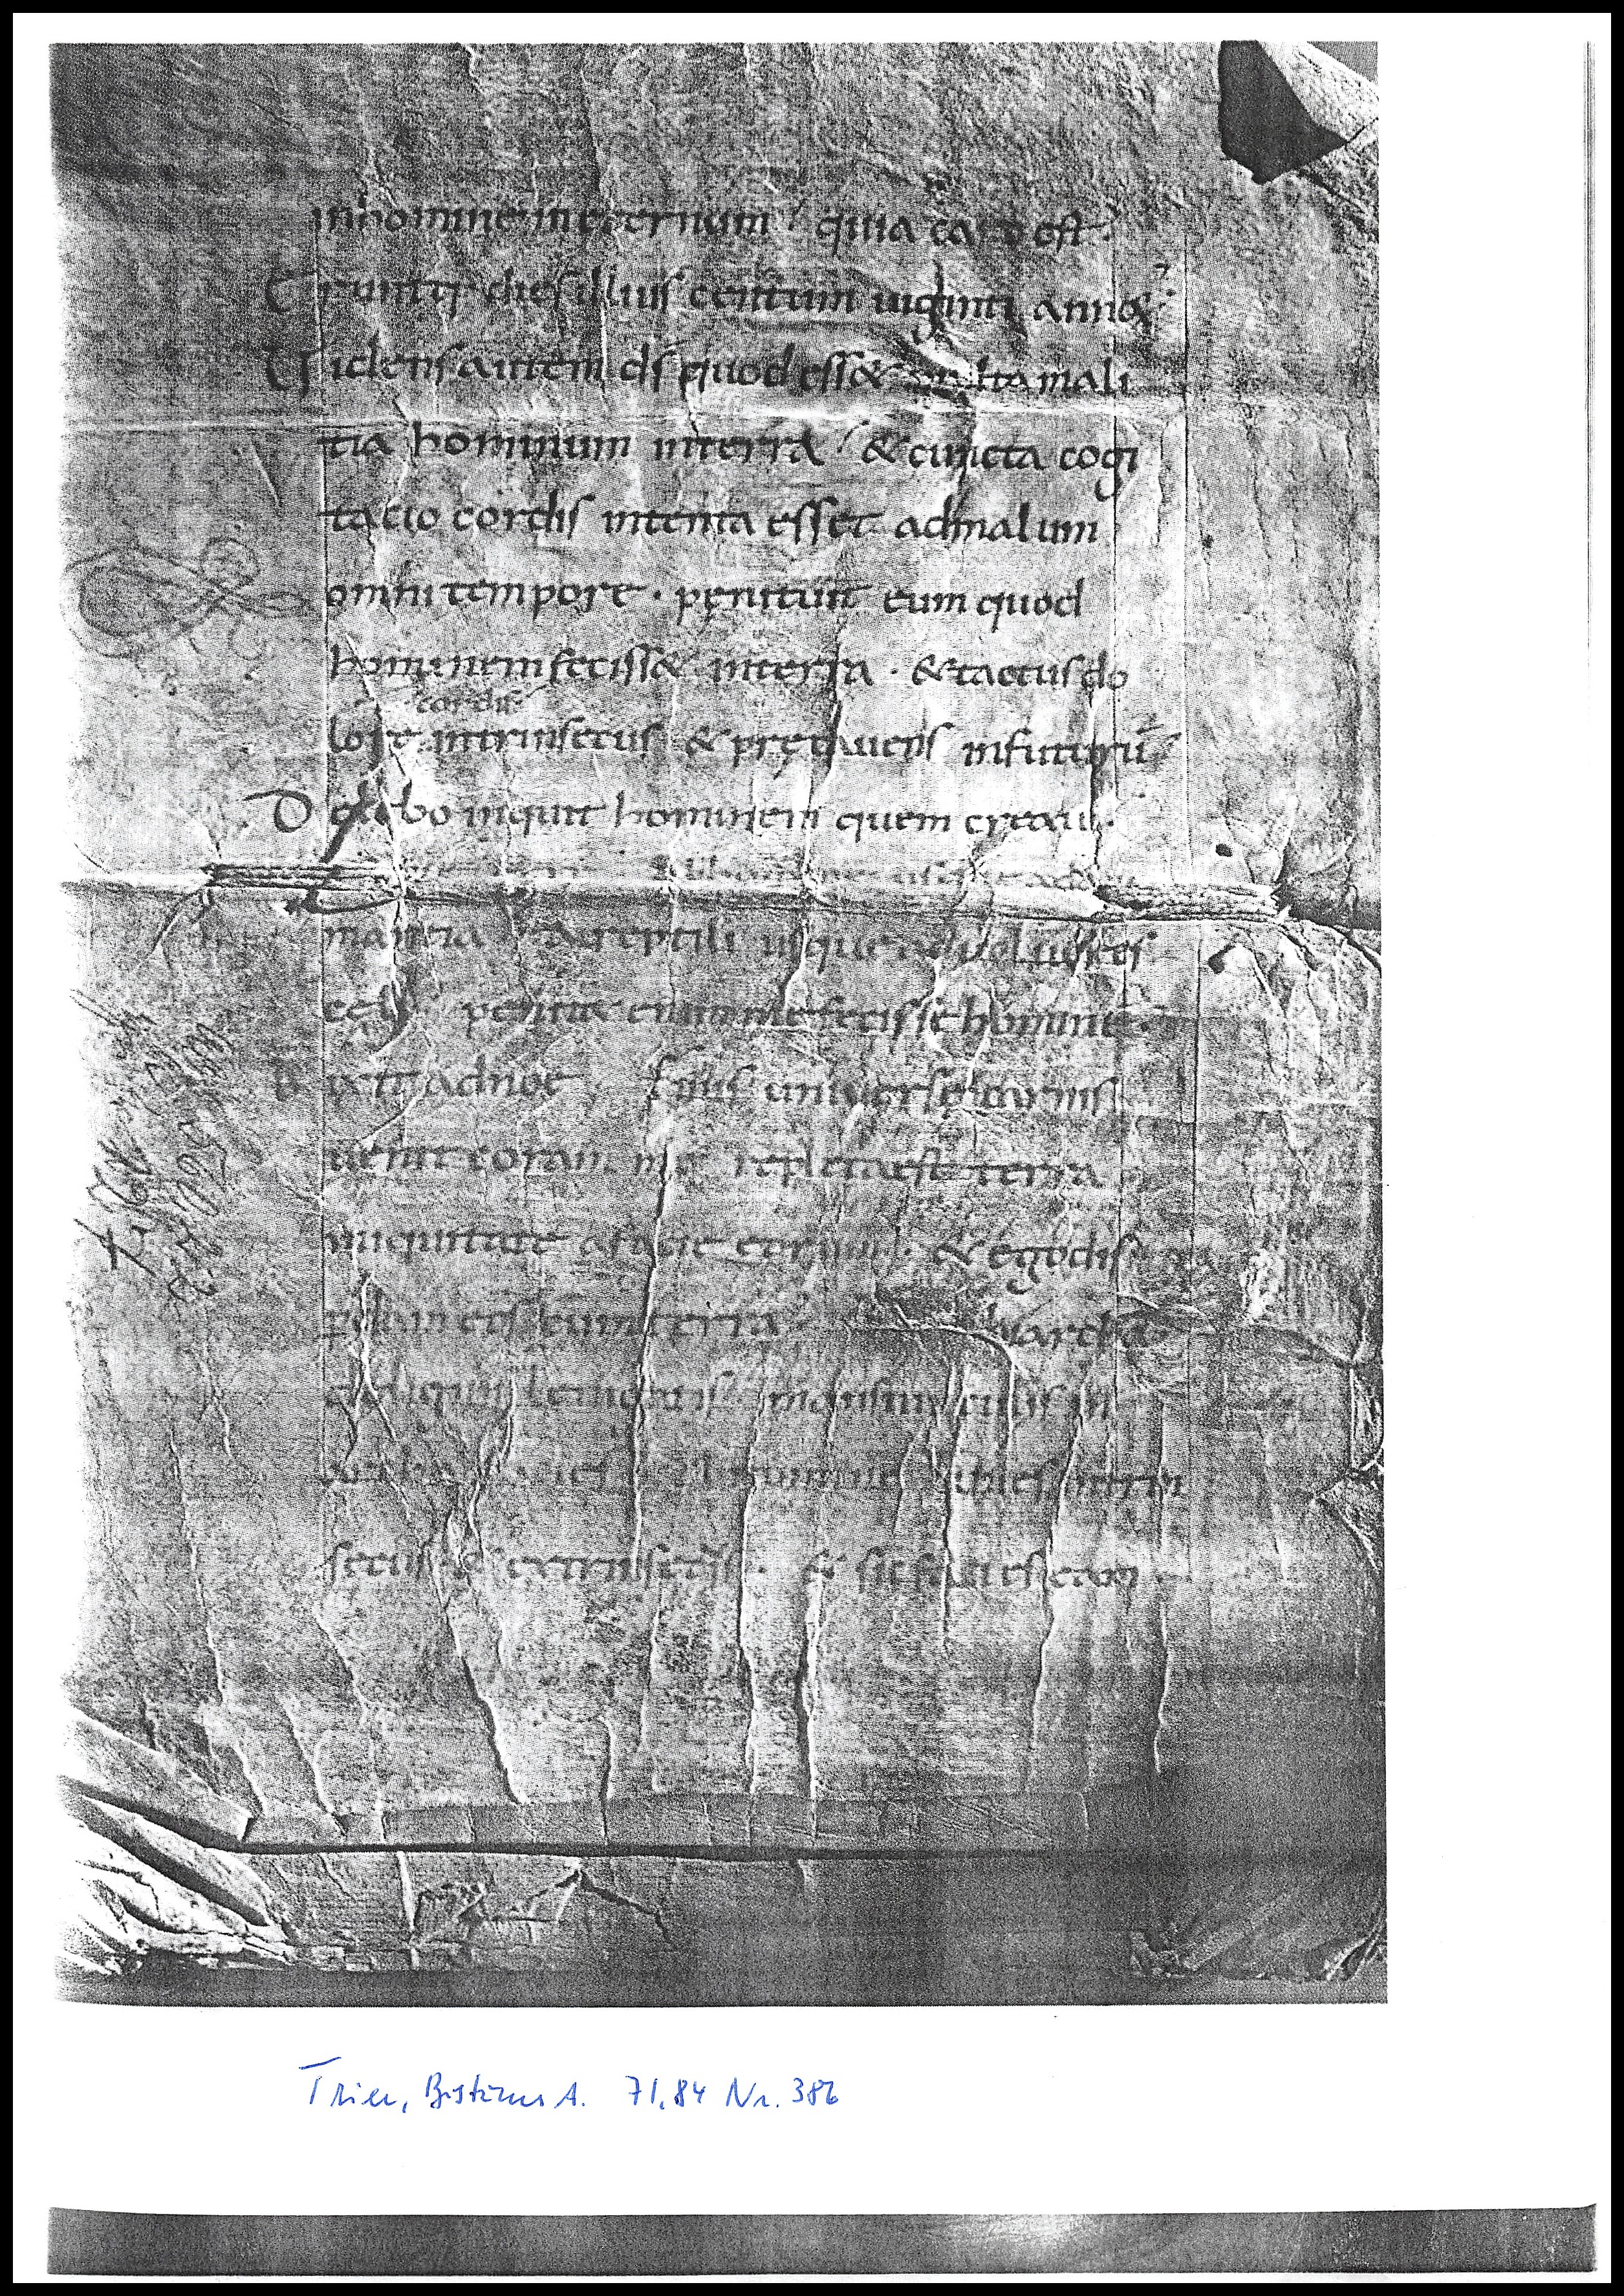 inhomine in eternum quia caro est.
Eruntq; dies illius centum uiginti annoꝝ.
Uidens autem ds quod ess& multa mali
tia hominum interra & cuncta cogi
tatio cordis intenta esset admalum
omni tempore. penituit eum quod
hominem feciss& interra. & tactus do
cordis
lore intrinsecus & precauens infuturū
Delebo inquit hominem quem creaui.
mantia & reptili usque aduolucres
celi penit& enim me fecisse hominē.
Dixit adnoe finis uniuerse carnis
uenit coram me repleta est terra
iniquitate afacie eorum. & ego dis
eos cum terra. arcā
deligni leuigatis. mansiunculis in
facies bitumine linies intrin
secus & extrinsecus. & sic facies eam
Trier, Bistums A. 71,84 Nr. 386